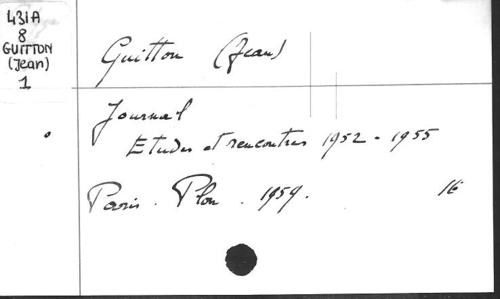 431A
8
GUITTON
(Jean)
1
Guitton (Jean)
Journal
Etudes et rencontres 1952-1955
Paris. Plon. 1959. 16